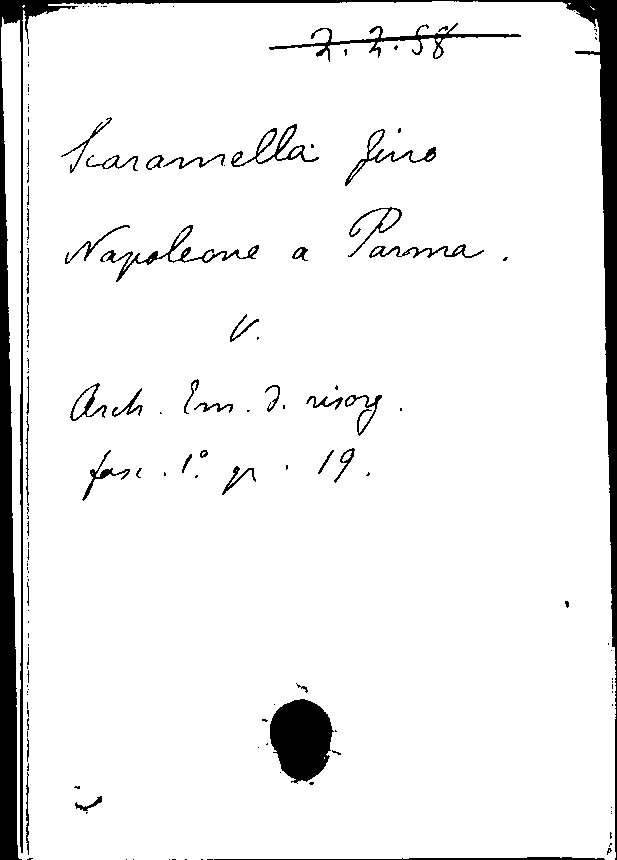 2.2.58
Scaramella Gino
Napoleone a Parma.
V.
Arch. Em. d. risorg.
fasc. 1º
19.